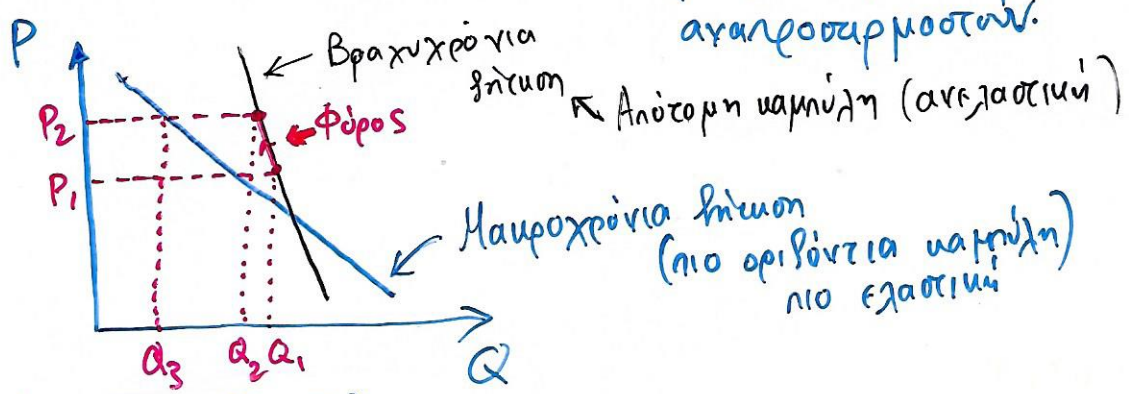 αναπροσαρμοστούν.
P
Βραχυχρόνια
ζήτηση
Απότομη καμπύλη (ανελαστική)
P₂
Φόρος
P₁
Μακροχρόνια ζήτηση
(πιο οριζόντια καμπύλη)
πιο ελαστική
Q₃ Q₂ Q₁ Q